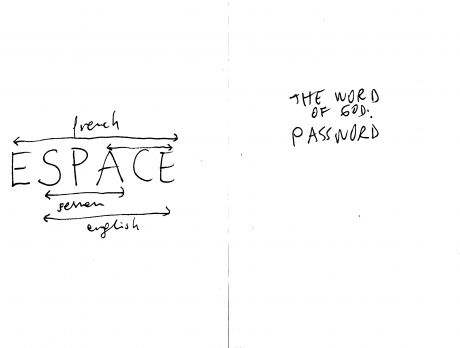 french
ESPACE
english
THE WORD
OF GOD:
PASSWORD